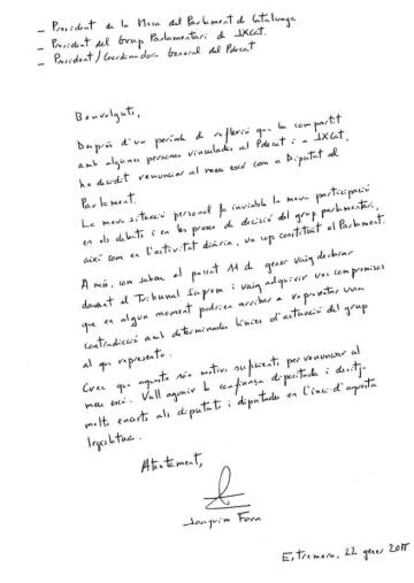 - President de la Mesa del Parlament de Catalunya
- President del Grup Parlamentari de JXCat.
- President/Coordinadora General del Pdecat
Benvolguts,
Després d'un període de reflexió que he compartit
amb algunes persones vinculades al Pdecat i a JXCat,
he decidit renunciar al meu escó com a Diputat al
Parlament.
La meva situació personal fa inviable la meva participació
en els debats i en la presa de decisió del grup parlamentari,
així com en l'activitat diària, un cop constituït el Parlament.
A més, com sabeu el passat 11 de gener vaig declarar
davant el Tribunal Suprem i vaig adquirir uns compromisos
que en algun moment podrien arribar a representar una
contradicció amb determinades línies d'actuació del grup
al qu represento.
Crec que aquests són motius suficients per renunciar al
meu escó. Vull agrair la confiança dipositada i desitjo
molts encerts als diputats i diputades en l'inici d'aquesta
legislatura.
Atentament,
Joaquim Forn
Estremera, 22 gener 2018